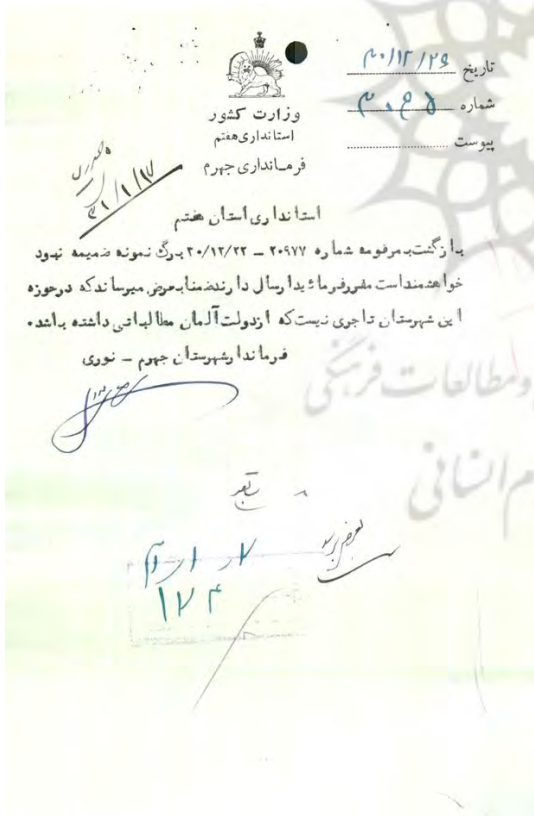 تاریخ ۲۰/۱۲/۲۹
شماره
پیوست
وزارت کشور
استانداری هفتم
فرمانداری جهرم
۲۱/۱/۱۷
استانداری استان هفتم
بازگشت بمرقومه شماره ۲۰۹۷۷ – ۲۰/۱۲/۲۲ برگ نمونه ضمیمه نبود
خواهشمند است مقرر فرمائید ارسال دارند ضمنا بعرض میرساند که در حوزه
این شهرستان تاجری نیست که از دولت آلمان مطالباتی داشته باشد.
فرماندار شهرستان جهرم – نوری
بعرض برسد
۱۷۴
و مطالعات فرهنگی
م انسانی